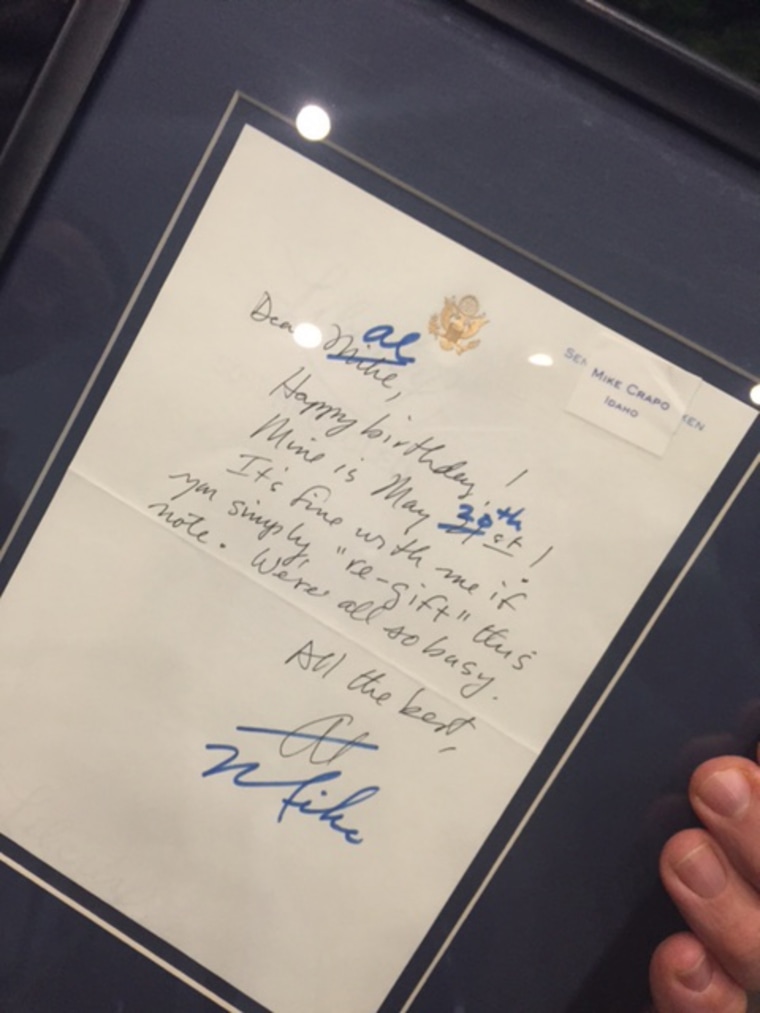 SEN
MIKE CRAPO
IDAHO
KEN
al
Dear Mike,
Happy birthday!
Mine is May 20th st!
It's fine with me if
you simply "re-gift" this
note. We're all so busy.
All the best,
Al
Mike